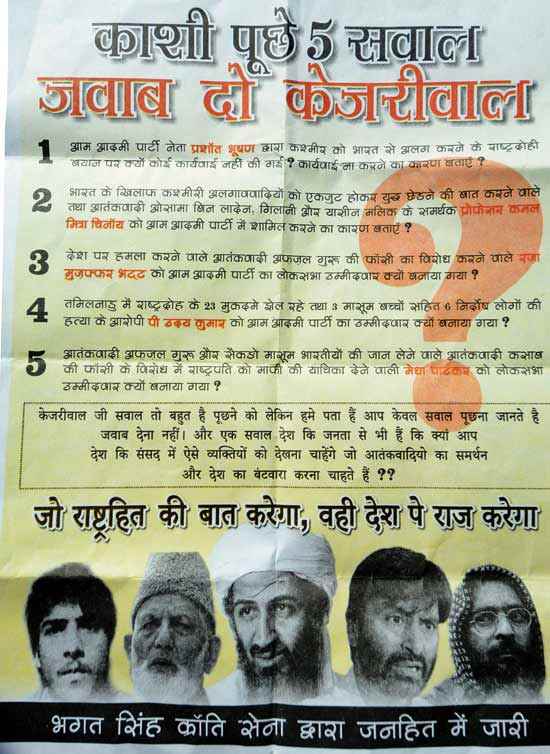 काशी पूछे 5 सवाल
जवाब दो केजरीवाल
1 आम आदमी पार्टी नेता प्रशाँत भूषण द्वारा कश्मीर को भारत से अलग करने के राष्ट्रद्रोही
बयान पर क्यों कोई कार्यवाई नहीं की गई ? कार्यवाई ना करने का कारण बताएँ ?
2 भारत के खिलाफ कश्मीरी अलगाववादियों को एकजुट होकर युद्ध छेडने की बात करने वाले
तथा आतंकवादी ओसामा बिन लादेन, गिलानी और यासीन मलिक के समर्थक प्रोफेसर कमल
मित्रा चिनॉय को आम आदमी पार्टी में शामिल करने का कारण बताएँ ?
3 देश पर हमला करने वाले आतंकवादी अफजल गुरू की फाँसी का विरोध करने वाले राजा
मुजफ्फर भट्ट को आम आदमी पार्टी का लोकसभा उम्मीदवार क्यों बनाया गया ?
4 तमिलनाडु में राष्ट्रद्रोह के 23 मुकदमे झेल रहे तथा 3 मासूम बच्चों सहित 6 निर्दोष लोगों की
हत्या के आरोपी पी उदय कुमार को आम आदमी पार्टी का उम्मीदवार क्यों बनाया गया ?
5 आतंकवादी अफजल गुरू और सैकडो मासूम भारतीयों की जान लेने वाले आतंकवादी कसाब
की फाँसी के विरोध में राष्ट्रपति को माफी की याचिका देने वाली मेधा पाटकर को लोकसभा
उम्मीदवार क्यों बनाया गया ?
केजरीवाल जी सवाल तो बहुत है पूछने को लेकिन हमे पता हैं आप केवल सवाल पूछना जानते है
जवाब देना नहीं। और एक सवाल देश कि जनता से भी हैं कि क्या आप
देश कि संसद में ऐसे व्यक्तियों को देखना चाहेंगे जो आतंकवादियो का समर्थन
और देश का बंटवारा करना चाहते हैं ??
जो राष्ट्रहित की बात करेगा, वही देश पे राज करेगा
भगत सिंह क्राँति सेना द्वारा जनहित में जारी